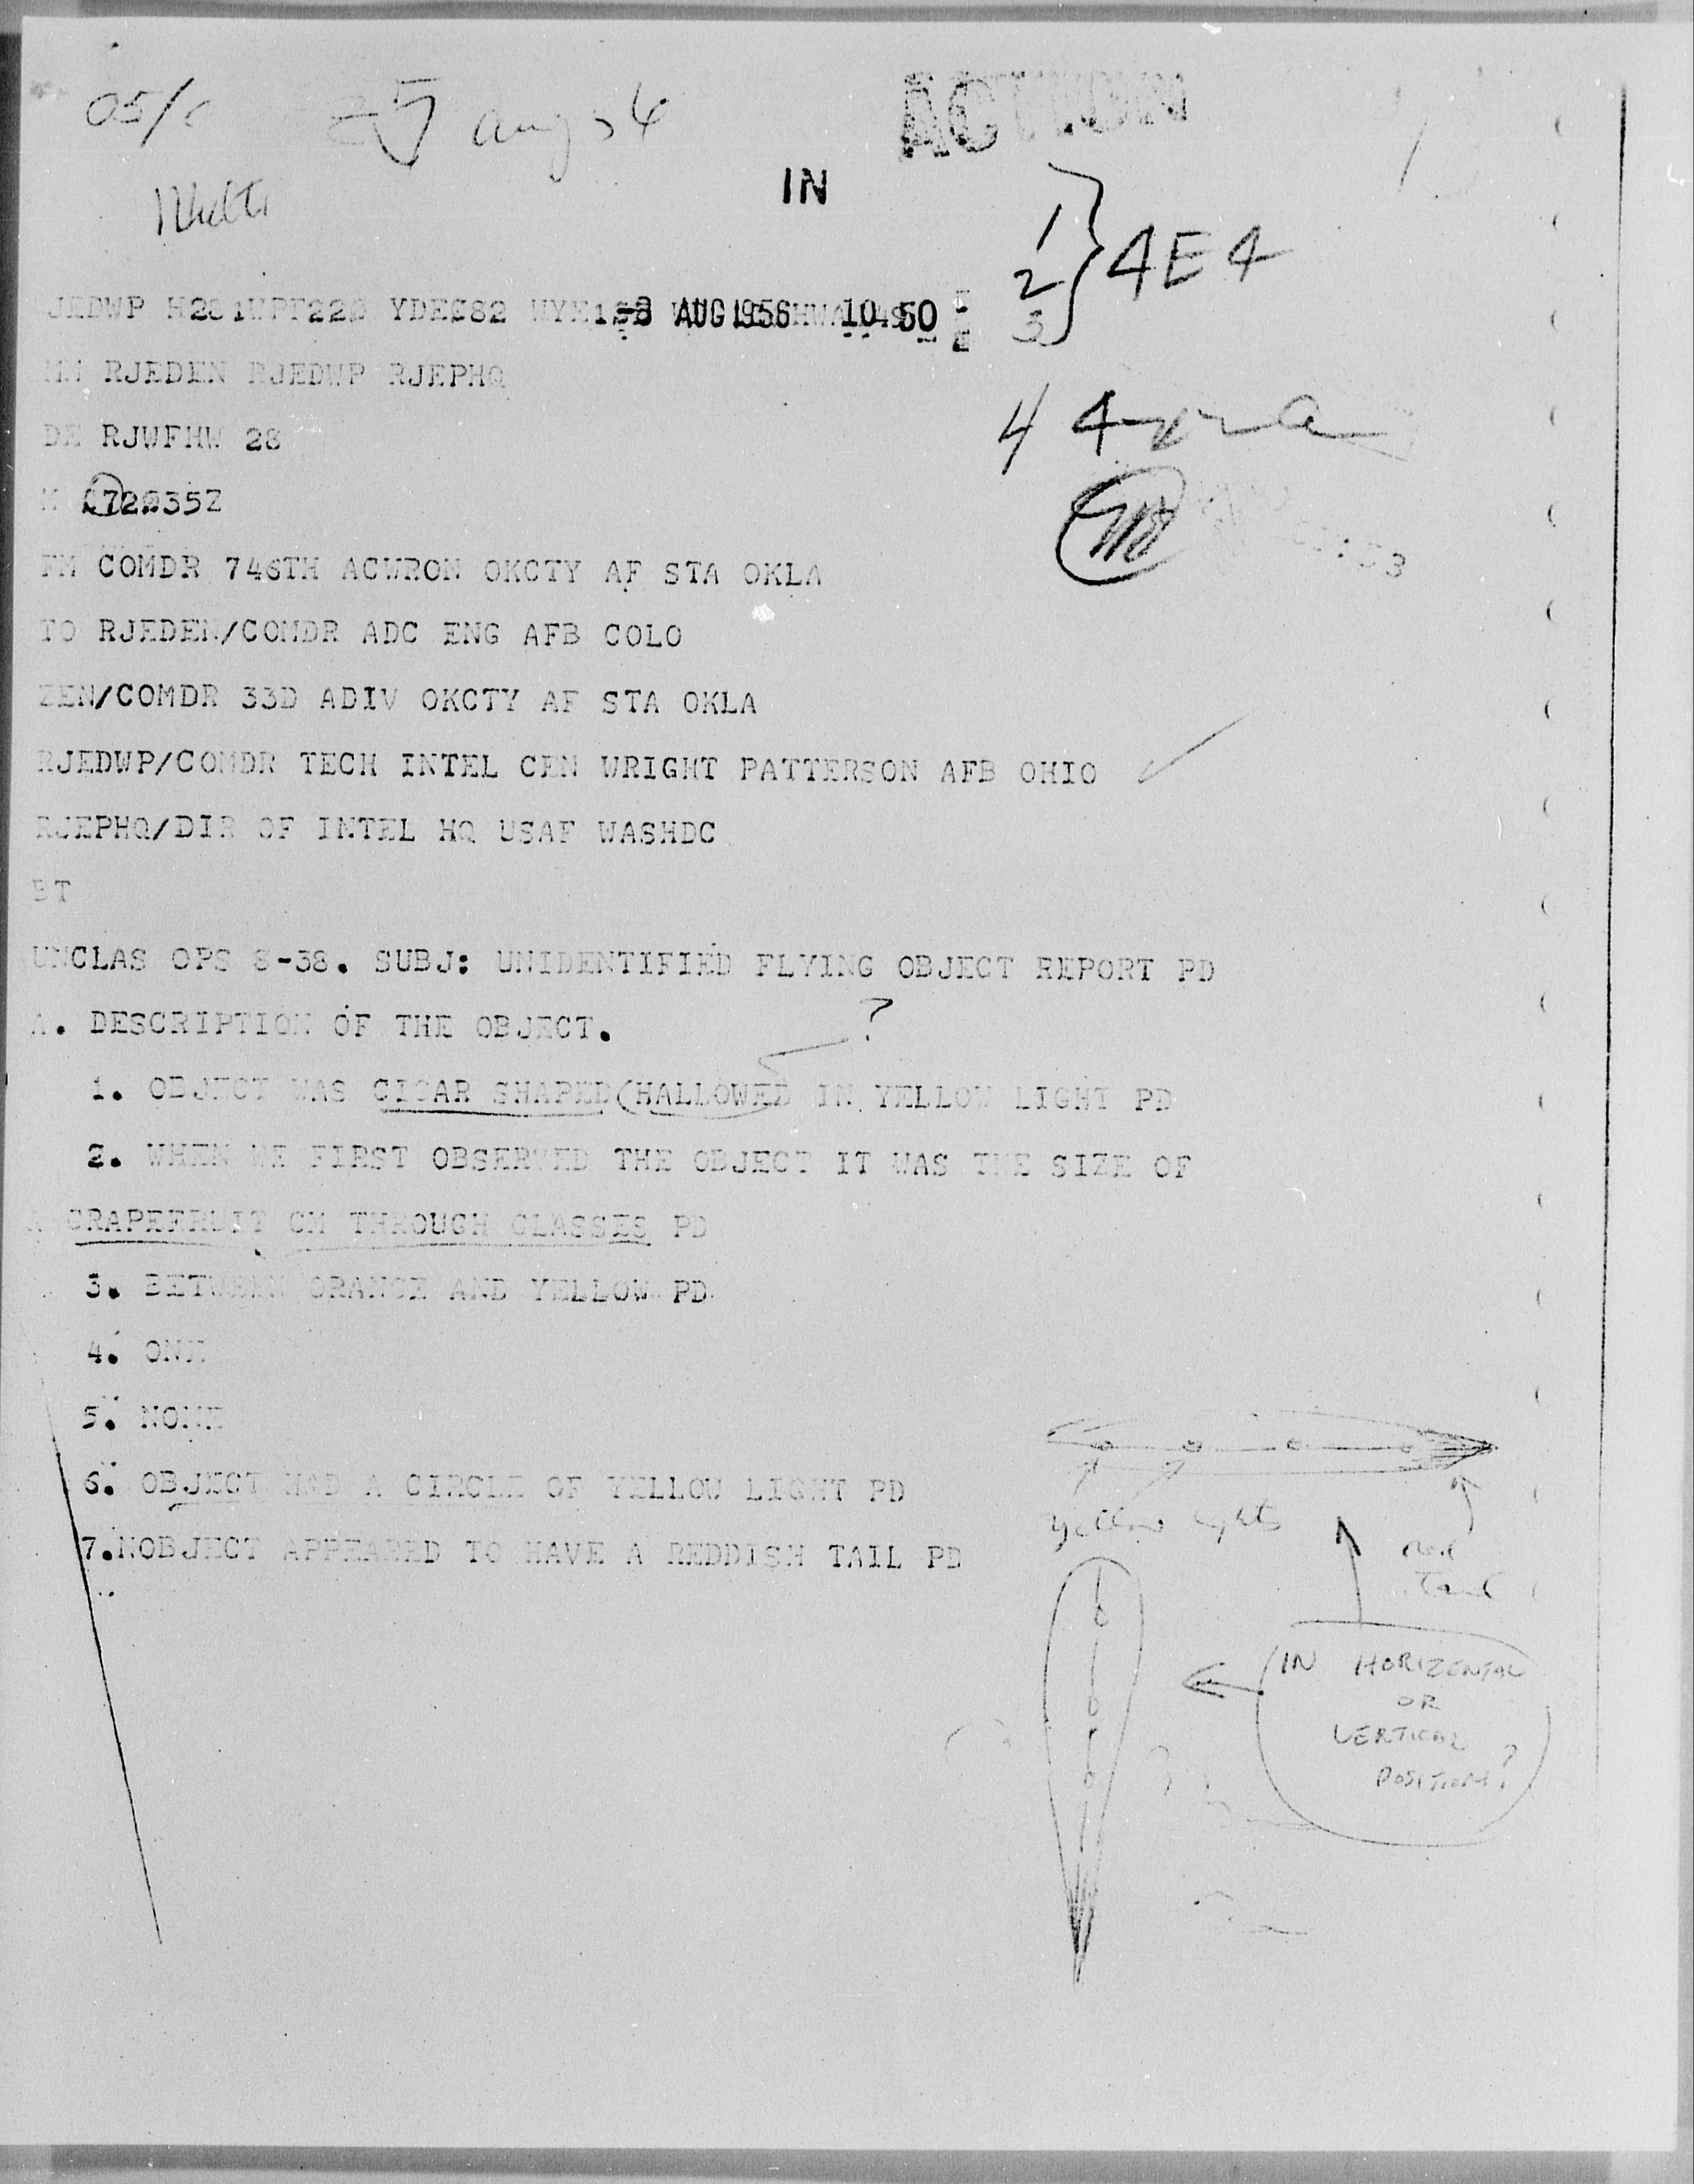 ACTION
IN
1
2 } 4E4
3
-8 AUG 1956 10 50
RJEDEN RJEDWP RJEPHQ
DE RJWFHW 28
FM COMDR 746TH ACWRON OKCTY AF STA OKLA
TO RJEDEN/COMDR ADC ENG AFB COLO
ZEN/COMDR 33D ADIV OKCTY AF STA OKLA
RJEDWP/COMDR TECH INTEL CEN WRIGHT PATTERSON AFB OHIO
RJEPHQ/DIR OF INTEL HQ USAF WASHDC
BT
UNCLAS OPS 8-38. SUBJ: UNIDENTIFIED FLYING OBJECT REPORT PD
A. DESCRIPTION OF THE OBJECT.
?
1. OBJECT WAS CIGAR SHAPED (HALLOWED IN YELLOW LIGHT PD
2. WHEN WE FIRST OBSERVED THE OBJECT IT WAS THE SIZE OF
A GRAPEFRUIT CM THROUGH GLASSES PD
3. BETWEEN ORANGE AND YELLOW PD
4. ONE
5. NONE
6. OBJECT HAD A CIRCLE OF YELLOW LIGHT PD
7.NOBJECT APPEARED TO HAVE A REDDISH TAIL PD
yellow lights
red
tail
IN HORIZENTAL
OR
VERTICAL
POSITION?